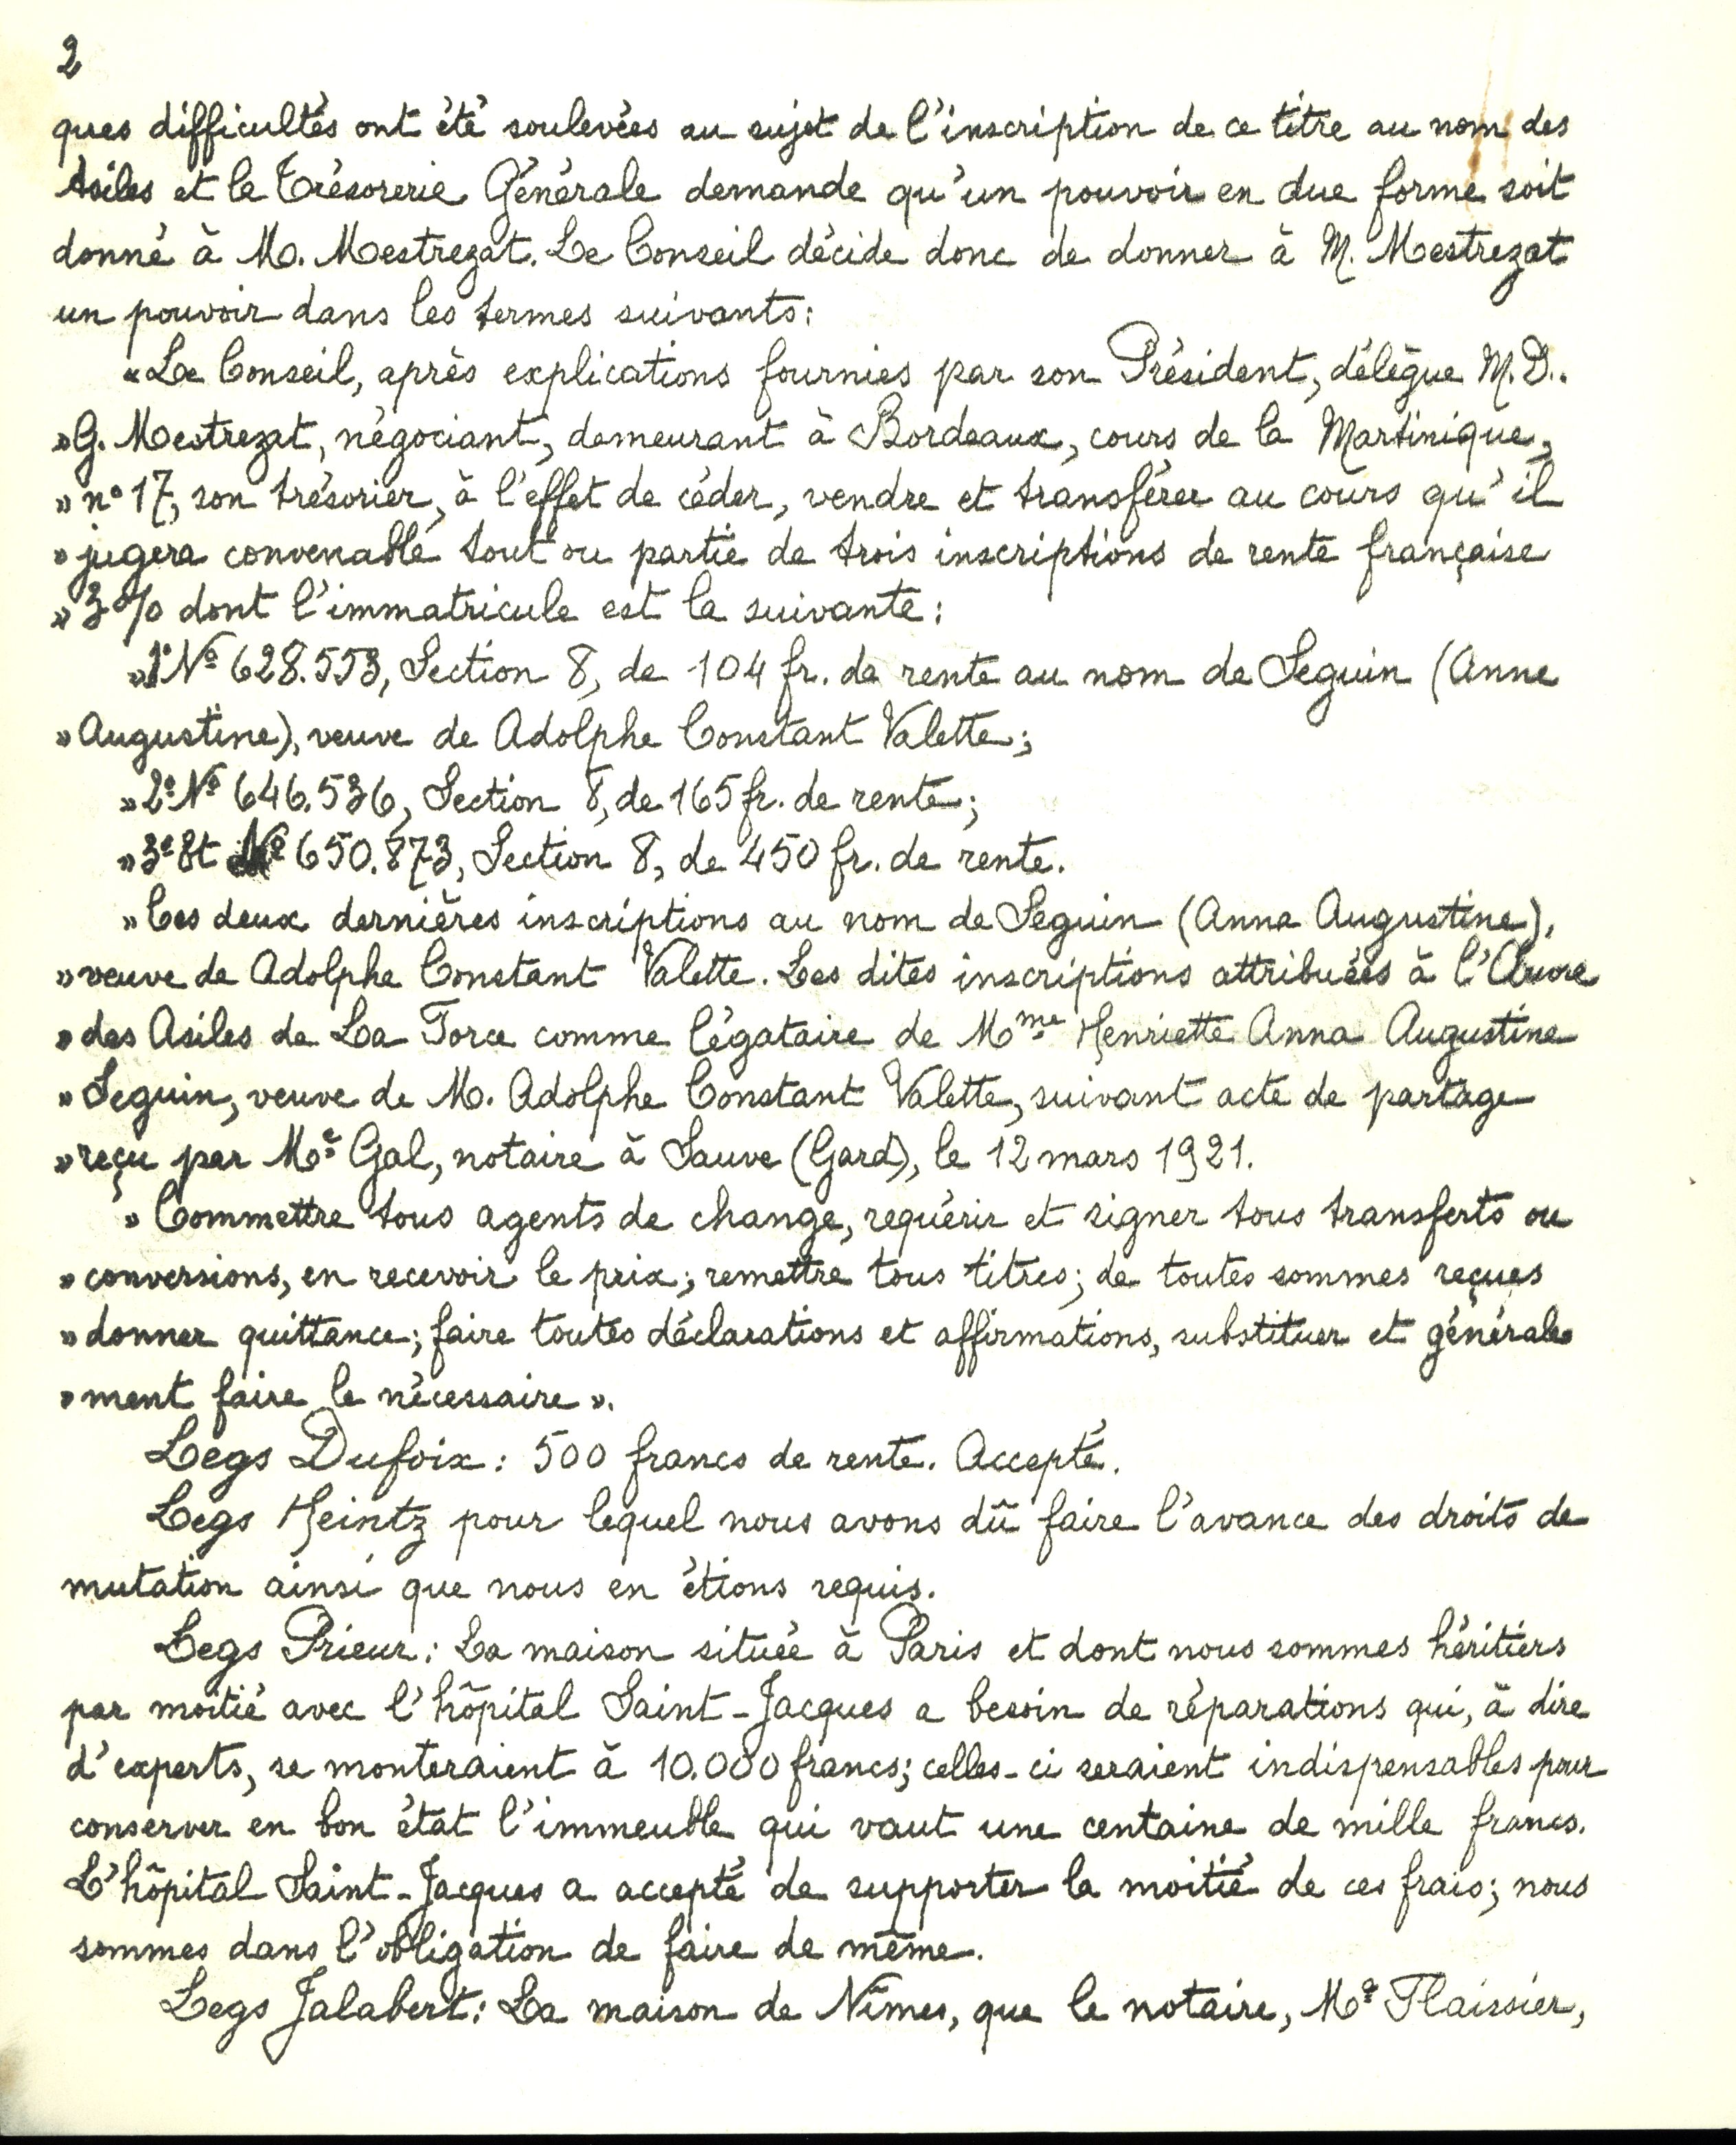 2
ques difficultés ont été soulevées au sujet de l'inscription de ce titre au nom des
Asiles et la Trésorerie Générale demande qu'un pouvoir en due forme soit
donné à M. Mestrezat. Le Conseil décide donc de donner à M. Mestrezat
un pouvoir dans les termes suivants:
«Le Conseil, après explications fournies par son Président, délègue M. D..
»G. Mestrezat, négociant, demeurant à Bordeaux, cours de la Martinique,
» n° 17, son trésorier, à l'effet de céder, vendre et transférer au cours qu'il
» jugera convenable tout ou partie de trois inscriptions de rente française
» 3% dont l'immatricule est la suivante:
»1° Nº 628.553, Section 8, de 104 fr. de rente au nom de Seguin (Anne
» Augustine), veuve de Adolphe Constant Valette;
»2° Nº 646.536, Section 8, de 165 fr. de rente;
»3° Et Nº 650.873, Section 8, de 450 fr. de rente.
» Ces deux dernières inscriptions au nom de Seguin (Anna Augustine),
» veuve de Adolphe Constant Valette. Les dites inscriptions attribuées à l'Œuvre
» des Asiles de La Force comme légataire de Mme Henriette Anna Augustine
» Seguin, veuve de M. Adolphe Constant Valette, suivant acte de partage
» reçu par Me Gal, notaire à Sauve (Gard), le 12 mars 1921.
» Commettre tous agents de change, requérir et signer tous transferts ou
» conversions, en recevoir le prix; remettre tous titres; de toutes sommes reçues
» donner quittance; faire toutes déclarations et affirmations, substituer et générale
» ment faire le nécessaire ».
Legs Dufoix: 500 francs de rente. Accepté.
Legs Heintz pour lequel nous avons dû faire l'avance des droits de
mutation ainsi que nous en étions requis.
Legs Prieur: La maison située à Paris et dont nous sommes héritiers
par moitié avec l'hôpital Saint-Jacques a besoin de réparations qui, à dire
d'experts, se monteraient à 10.000 francs; celles-ci seraient indispensables pour
conserver en bon état l'immeuble qui vaut une centaine de mille francs.
L'hôpital Saint-Jacques a accepté de supporter la moitié de ces frais; nous
sommes dans l'obligation de faire de même.
Legs Jalabert: La maison de Nîmes, que le notaire, Me Flaissier,